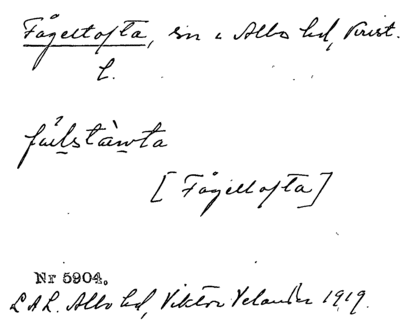 Fågeltofta, sn i Albo hd, Krist.
L.
fúls̲tàw̲ta
[Fågeltofta]
Nr 5904.
LAL. Albo hd, Viktor Jelander 1919.